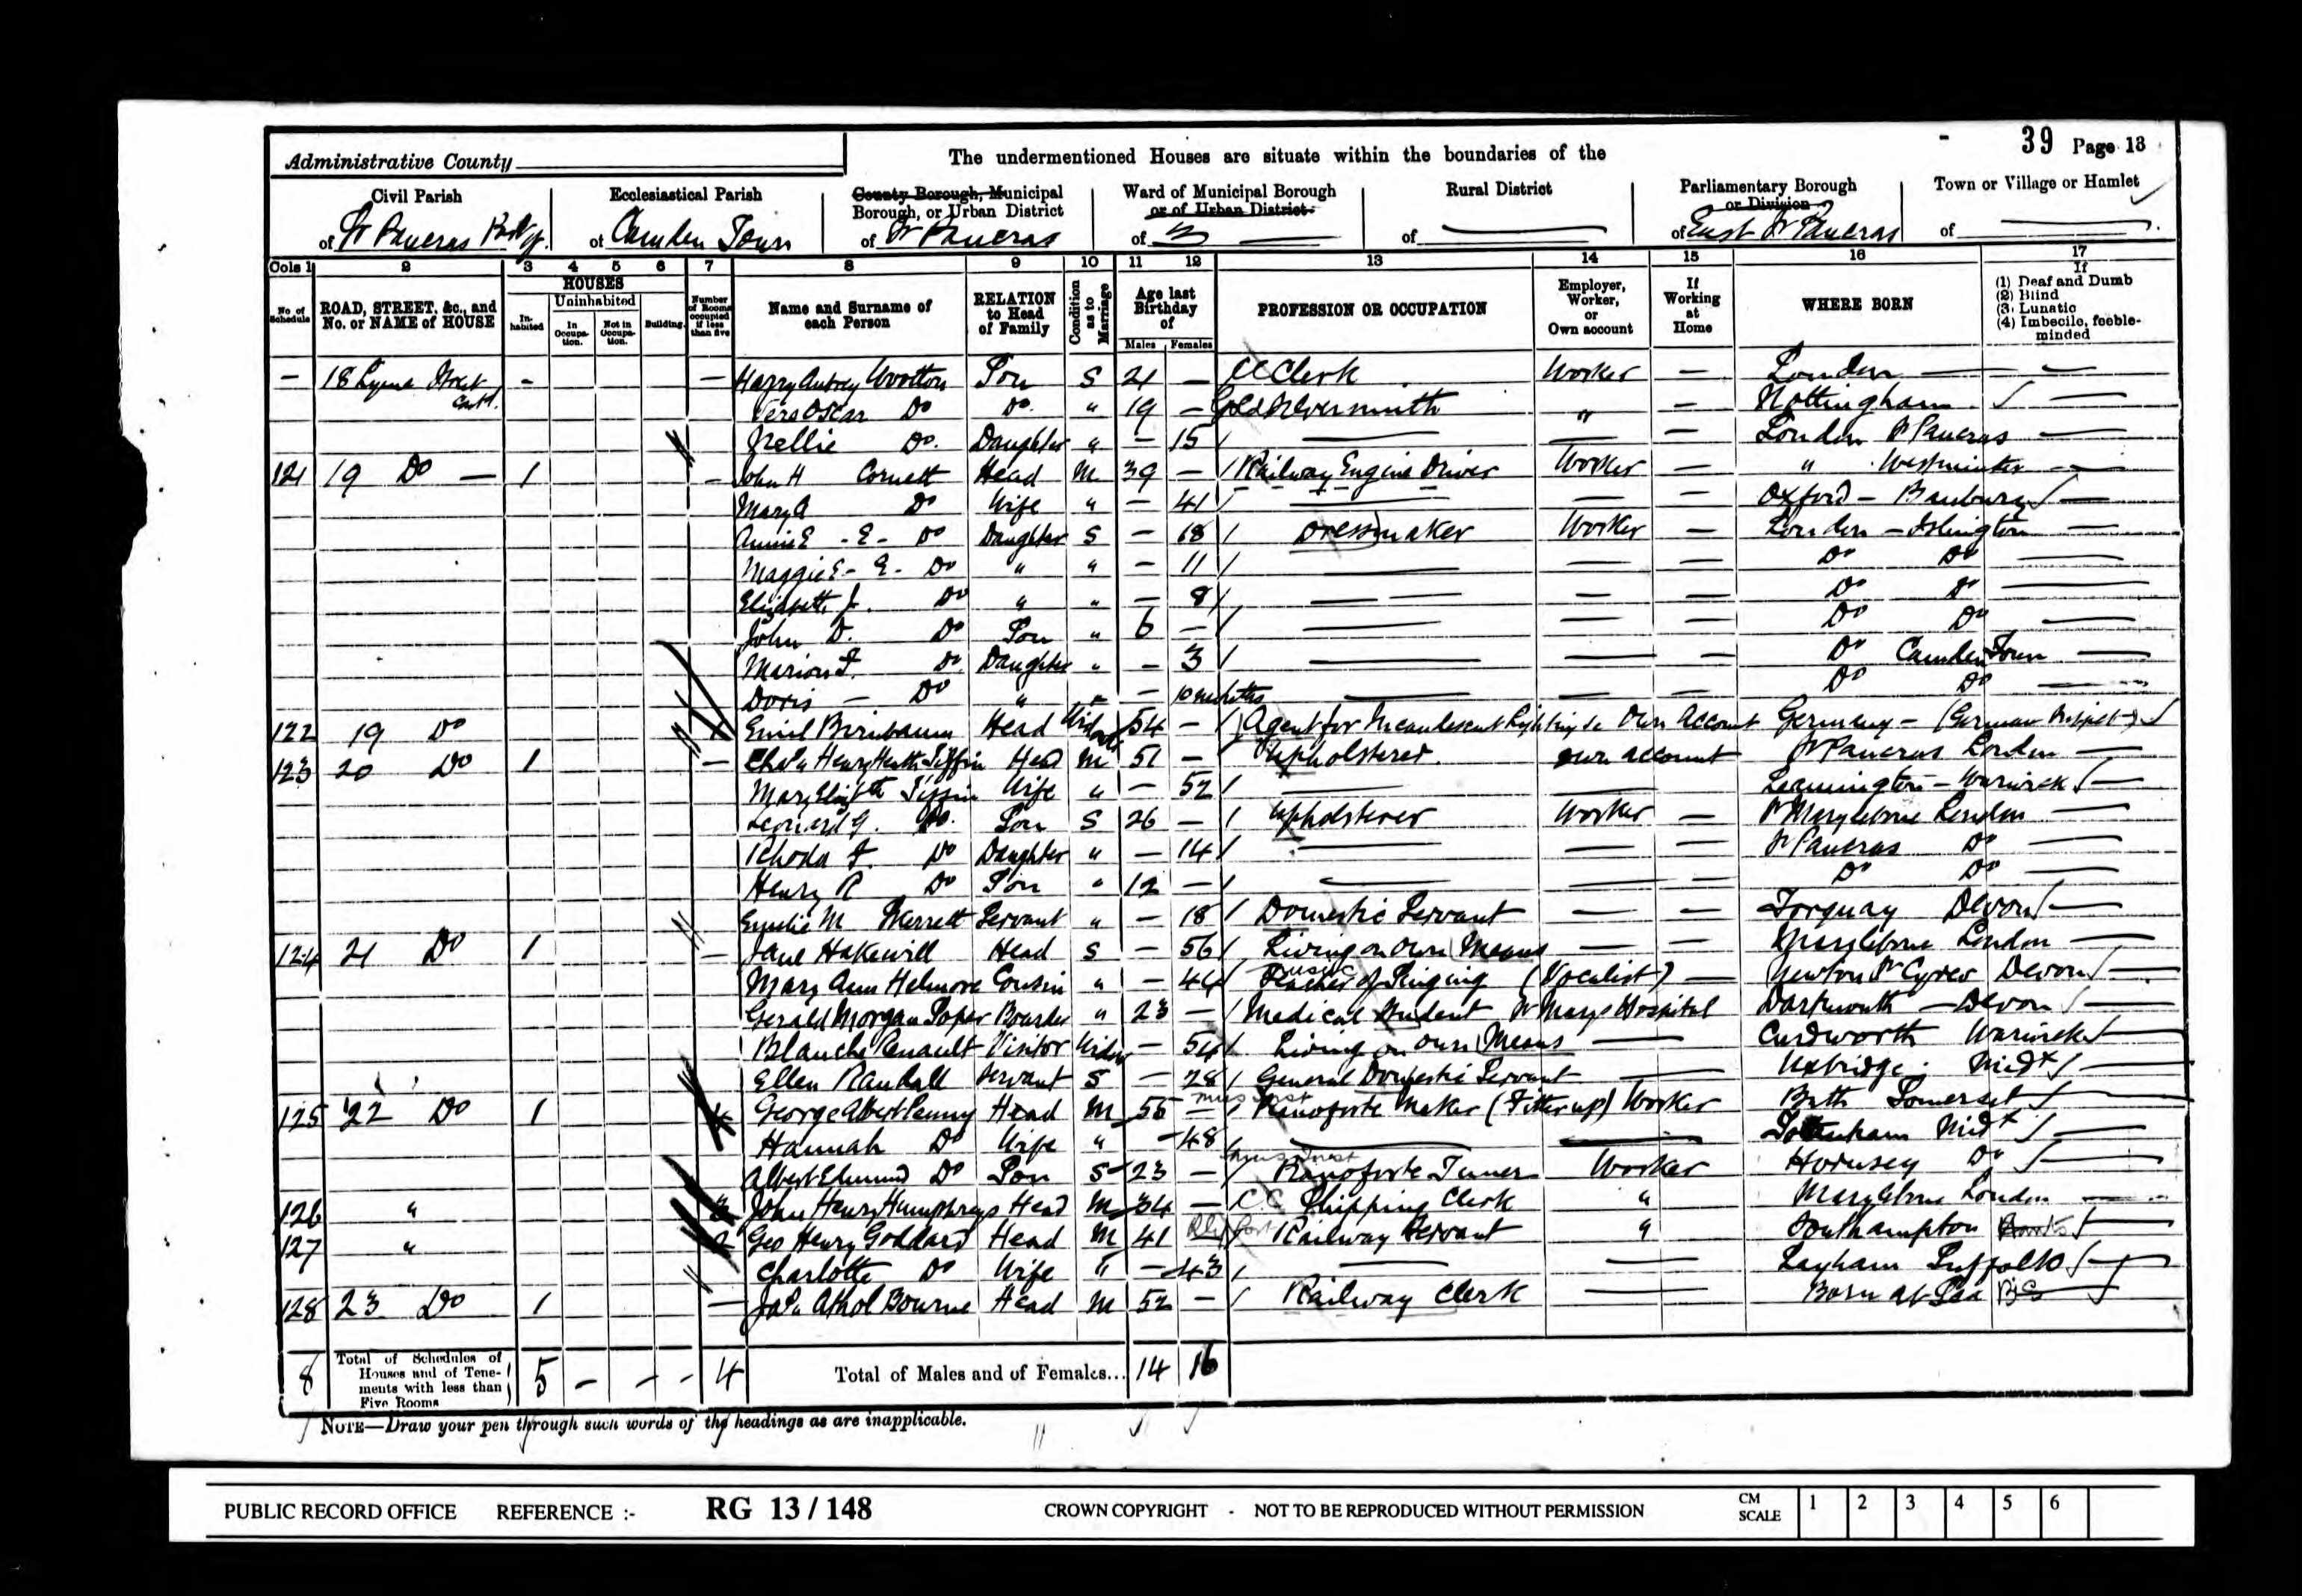 39 Page 13
Administrative County
The undermentioned Houses are situate within the boundaries of the
Civil Parish
of St Pancras
Ecclesiastical Parish
of Camden Town
County Borough, Municipal Borough, or Urban District
of St Pancras
Ward of Municipal Borough or of Urban District
of
Rural District
of
Parliamentary Borough or Division
of East St Pancras
Town or Village or Hamlet
of
Cols 1 2 3 4 5 6 7 8 9 10 11 12 13 14 15 16 17
No. of Schedule
ROAD, STREET, &c., and No. or NAME of HOUSE
HOUSES
Inhabited
Uninhabited
In Occupation.
Not in Occupation.
Building.
Number of Rooms occupied if less than five
Name and Surname of each Person
RELATION to Head of Family
Condition as to Marriage
Age last Birthday of
Males Females
PROFESSION OR OCCUPATION
Employer, Worker, or Own account
If Working at Home
WHERE BORN
If
(1) Deaf and Dumb
(2) Blind
(3) Lunatic
(4) Imbecile, feeble-minded
— 18 Lyme Street Contd. - — Harry Aubrey Wootton Son S 21 — Clerk Worker — London —
Oscar Do Do " 19 — Silversmith " — Nottingham —
Nellie Do. Daughter " — 15 — — — London St Pancras —
121 19 Do — 1 — John H Cornett Head M 39 — Railway Engine Driver Worker — " Westminster —
Mary A Do Wife " — 41 — — — Oxford - Banbury —
Annie E - E - Do Daughter S — 18 Dressmaker Worker — London - Islington —
Maggie E - E - Do " " — 11 — — — Do Do —
Elizabeth J. Do " " — 8 — — — Do Do —
John D. Do Son " 6 — — — — Do Do —
Marion F. Do Daughter " — 3 — — — Do Camden Town —
Doris — Do " " — 10 months — — — Do Do —
122 19 Do 1 Emil Birnbaum Head Widower 54 — Agent for Incandescent Lighting &c Own Account Germany - (German Subject)
123 20 Do 1 — Chas Henry Heath Tiffin Head M 51 — Upholsterer. own account St Pancras London —
Mary Elizth Tiffin Wife " — 52 — — Leamington - Warwick —
Leonard G. Do. Son S 26 — Upholsterer Worker — St Marylebone London —
Rhoda F. Do Daughter " — 14 — — — St Pancras Do —
Henry R Do Son " 12 — — — — Do Do —
Emelie M Servant " — 18 Domestic Servant — — Torquay Devon —
124 21 Do 1 — Jane Hakewill Head S — 56 Living on own Means — — Marylebone London —
Mary Ann Helmore Cousin " — 44 Music Teacher of Singing (Vocalist) — Newton St Cyres Devon —
Gerald Morgan Soper Boarder " 23 — Medical Student St Marys Hospital Dartmouth - Devon —
Blanche Renault Visitor Widow — 54 Living on own Means — Curdworth Warwick —
Ellen Randall Servant S — 28 General Domestic Servant — Uxbridge Midx —
125 22 Do 1 4 George Albert Penny Head M 56 — Mus Inst Pianoforte Maker (Fitter up) Worker Bath Somerset —
Hannah Do Wife " — 48 — — Tottenham Midx —
Albert Edmund Do Son S 23 — Mus Inst Pianoforte Tuner Worker Hornsey Do —
126 " 3 John Henry Humphreys Head M 34 — C C Shipping Clerk " Marylebone London —
127 " 2 Geo Henry Goddard Head M 41 Railway Servant " Southampton Hants —
Charlotte Do Wife " — 43 — — Layham Suffolk —
128 23 Do 1 — Jas Athol Bourne Head M 52 — Railway Clerk — Born at Sea
8 Total of Schedules of Houses and of Tenements with less than Five Rooms 5 - - - 4 Total of Males and of Females... 14 16
NOTE—Draw your pen through such words of the headings as are inapplicable.
PUBLIC RECORD OFFICE REFERENCE :- RG 13 / 148 CROWN COPYRIGHT - NOT TO BE REPRODUCED WITHOUT PERMISSION CM SCALE 1 2 3 4 5 6